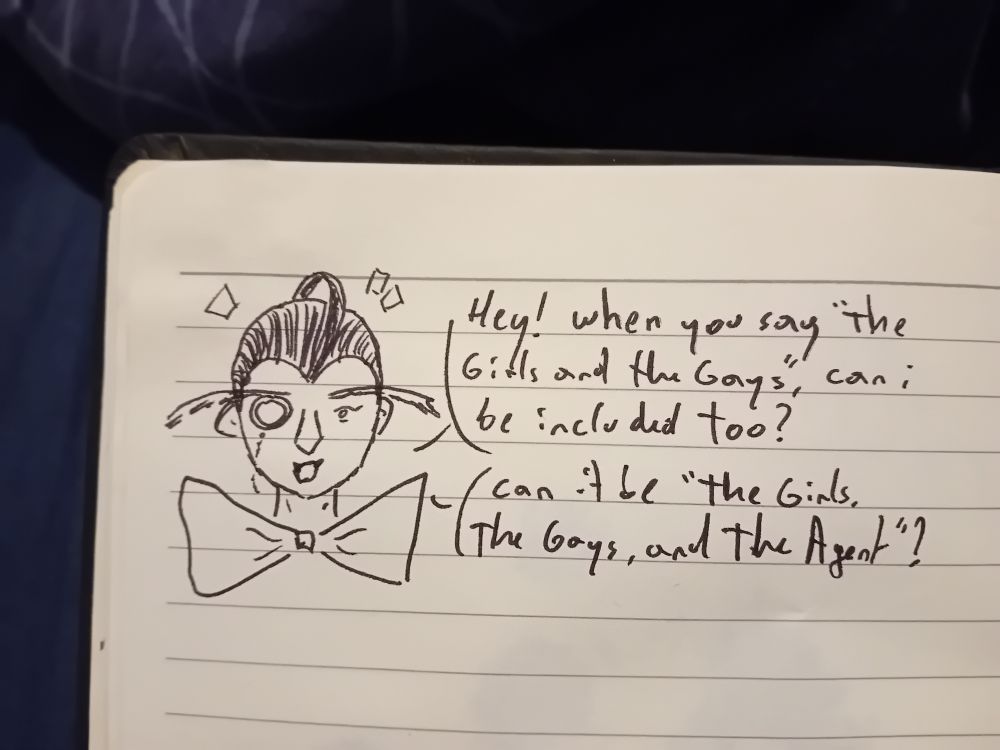 Hey! when you say "the
Girls and the Gays", can i
be included too?
can it be "the Girls,
The Gays, and The Agent"?